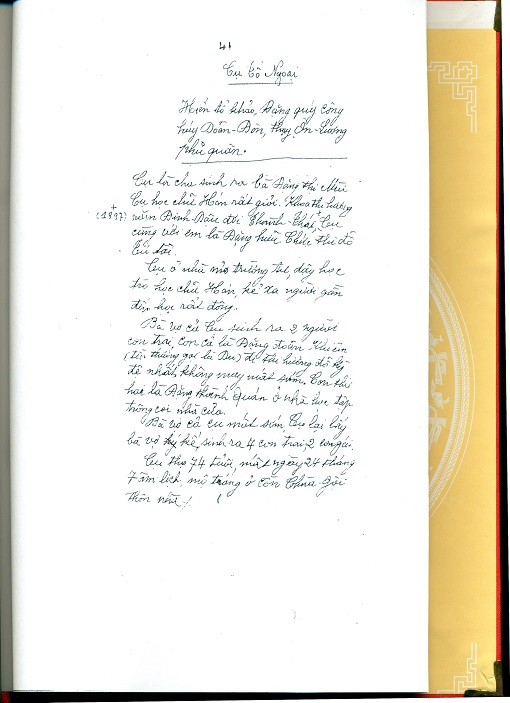 41
Cụ Cố Ngoại
Hiển tổ khảo, Đặng quý công
húy Doãn-Đôn, thụy Ôn-Lương
phủ quân.
Cụ là cha sinh ra bà Đặng thị Mùi
Cụ học chữ Hán rất giỏi. Khoa thi hương
(1897) năm Đinh-Dậu đời Thành-Thái, Cụ
cùng với em là Đặng hữu Chức thi đỗ
Tú tài.
Cụ ở nhà mở trường tư, dậy học
trò học chữ Hán, kẻ xa người gần
đến học rất đông.
Bà vợ cả Cụ sinh ra 2 người
con trai, con cả là Đặng đoãn
(tên thường gọi là Du) đi thi hương đỗ kỳ
đệ nhất, không may mất sớm. Con thứ
hai là Đặng thành Quán ở nhà học tập
trông coi nhà cửa.
Bà vợ cả cụ mất sớm, Cụ lại lấy
bà vợ kế, sinh ra 4 con trai, 2 con gái.
Cụ thọ 74 tuổi, mất ngày 24 tháng
7 âm lịch mộ táng ở Cồn Chùa Gôi
thôn nhà.